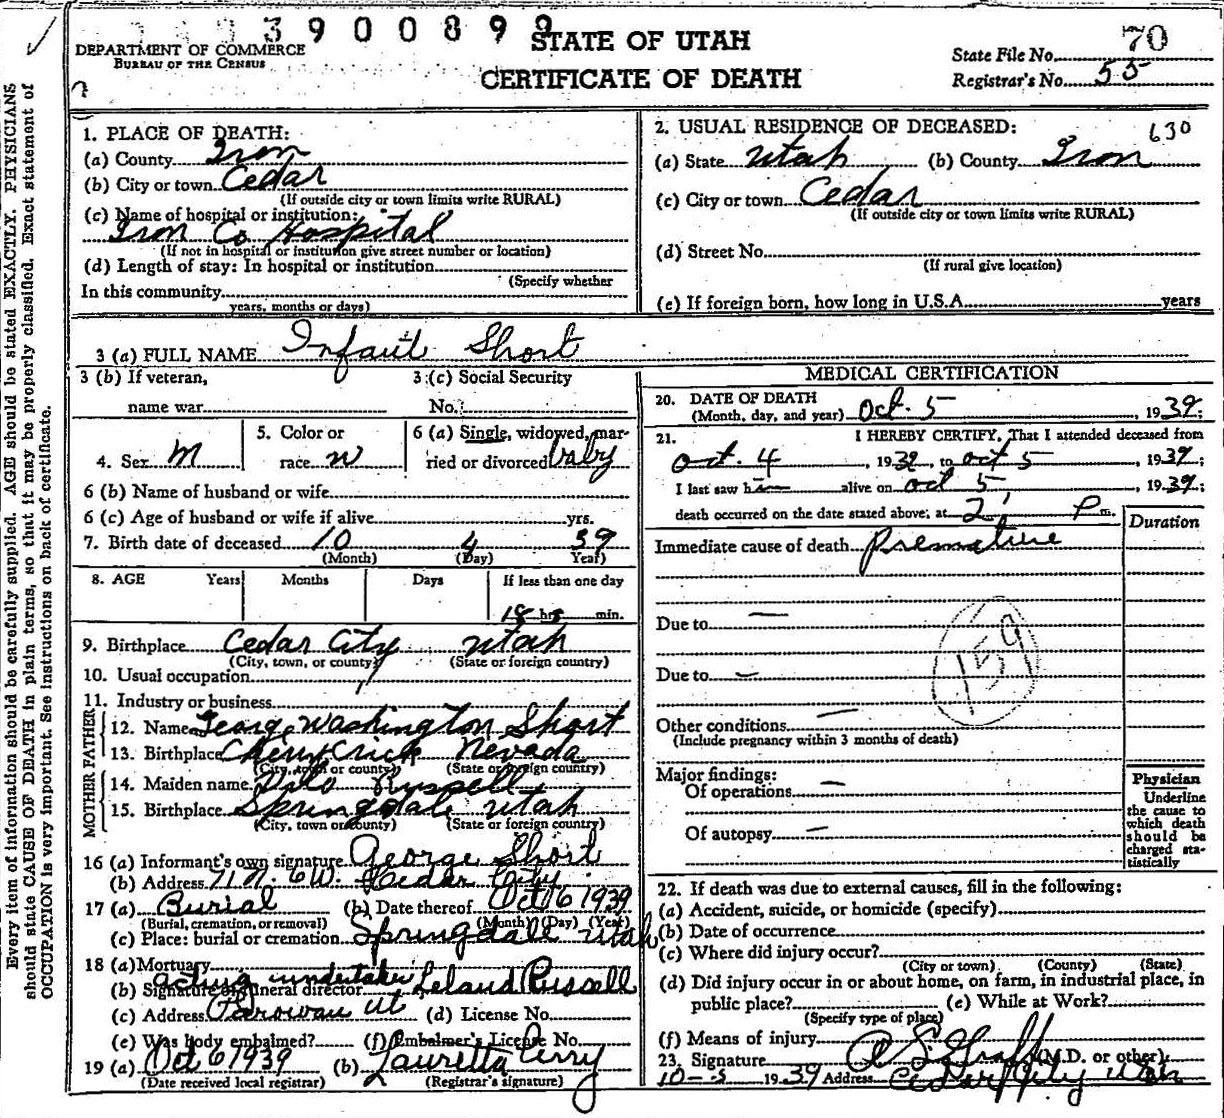 3900899
DEPARTMENT OF COMMERCE
BUREAU OF THE CENSUS
STATE OF UTAH
CERTIFICATE OF DEATH
State File No. 70
Registrar's No. 55
Every item of information should be carefully supplied. AGE should be stated EXACTLY. PHYSICIANS
should state CAUSE OF DEATH in plain terms, so that it may be properly classified. Exact statement of
OCCUPATION is very important. See instructions on back of certificate.
1. PLACE OF DEATH:
(a) County Iron
(b) City or town Cedar
(If outside city or town limits write RURAL)
(c) Name of hospital or institution:
Iron Co Hospital
(If not in hospital or institution give street number or location)
(d) Length of stay: In hospital or institution
(Specify whether
In this community
years, months or days)
2. USUAL RESIDENCE OF DECEASED: 630
(a) State Utah (b) County Iron
(c) City or town Cedar
(If outside city or town limits write RURAL)
(d) Street No.
(If rural give location)
(e) If foreign born, how long in U.S.A. years
3 (a) FULL NAME Infant Short
3 (b) If veteran,
name war
3 (c) Social Security
No.
4. Sex M
5. Color or
race w
6 (a) Single, widowed, mar-
ried or divorced baby
6 (b) Name of husband or wife
6 (c) Age of husband or wife if alive yrs.
7. Birth date of deceased 10 4 39
(Month) (Day) Year)
8. AGE Years Months Days If less than one day
18 hrs min.
9. Birthplace Cedar City Utah
(City, town, or county) (State or foreign country)
10. Usual occupation
11. Industry or business
FATHER
12. Name George Washington Short
13. Birthplace Cherry Crick Nevada
(City, town or county) (State or foreign country)
MOTHER
14. Maiden name Russell
15. Birthplace Springdale Utah
(City, town or county) (State or foreign country)
16 (a) Informant's own signature George Short
(b) Address 71 N. 6 W. Cedar City
17 (a) Burial (b) Date thereof Oct 6 1939
(Burial, cremation, or removal) (Month) (Day) (Year)
(c) Place: burial or cremation Springdall Utah
18 (a) Mortuary
acting undertaker Leland Russell
(b) Signature of funeral director
(c) Address Parowan Ut (d) License No.
(e) Was body embalmed? (f) Embalmer's License No.
19 (a) Oct 6 1939 (b) Lauretta Perry
(Date received local registrar) (Registrar's signature)
MEDICAL CERTIFICATION
20. DATE OF DEATH
(Month, day, and year) Oct. 5, 1939;
21. I HEREBY CERTIFY, That I attended deceased from
Oct. 4, 1939, to Oct 5, 1939;
I last saw him alive on Oct 5, 1939;
death occurred on the date stated above; at 2, P m.
Duration
Immediate cause of death Premature
Due to —
159
Due to —
Other conditions —
(Include pregnancy within 3 months of death)
Major findings:
Of operations —
Of autopsy —
Physician
Underline
the cause to
which death
should be
charged sta-
tistically
22. If death was due to external causes, fill in the following:
(a) Accident, suicide, or homicide (specify)
(b) Date of occurrence
(c) Where did injury occur?
(City or town) (County) (State)
(d) Did injury occur in or about home, on farm, in industrial place, in
public place? (e) While at Work?
(Specify type of place)
(f) Means of injury
23. Signature Graff (M.D. or other)
10-5 1939 Address Cedar City Utah